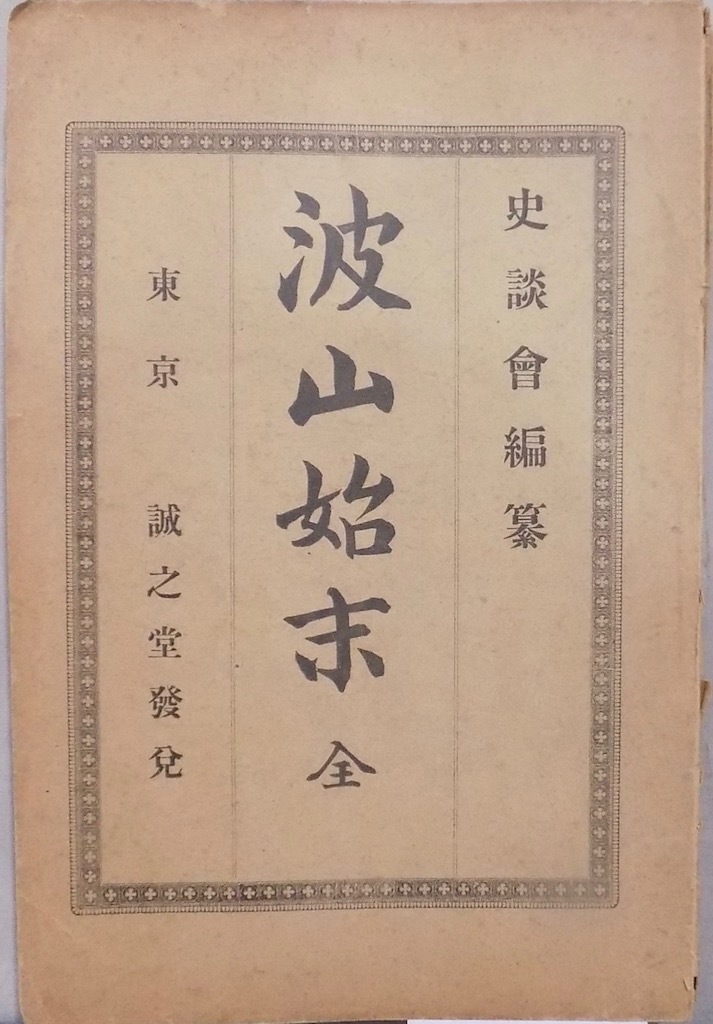 史談會編纂
波山始末 全
東京 誠之堂發兌